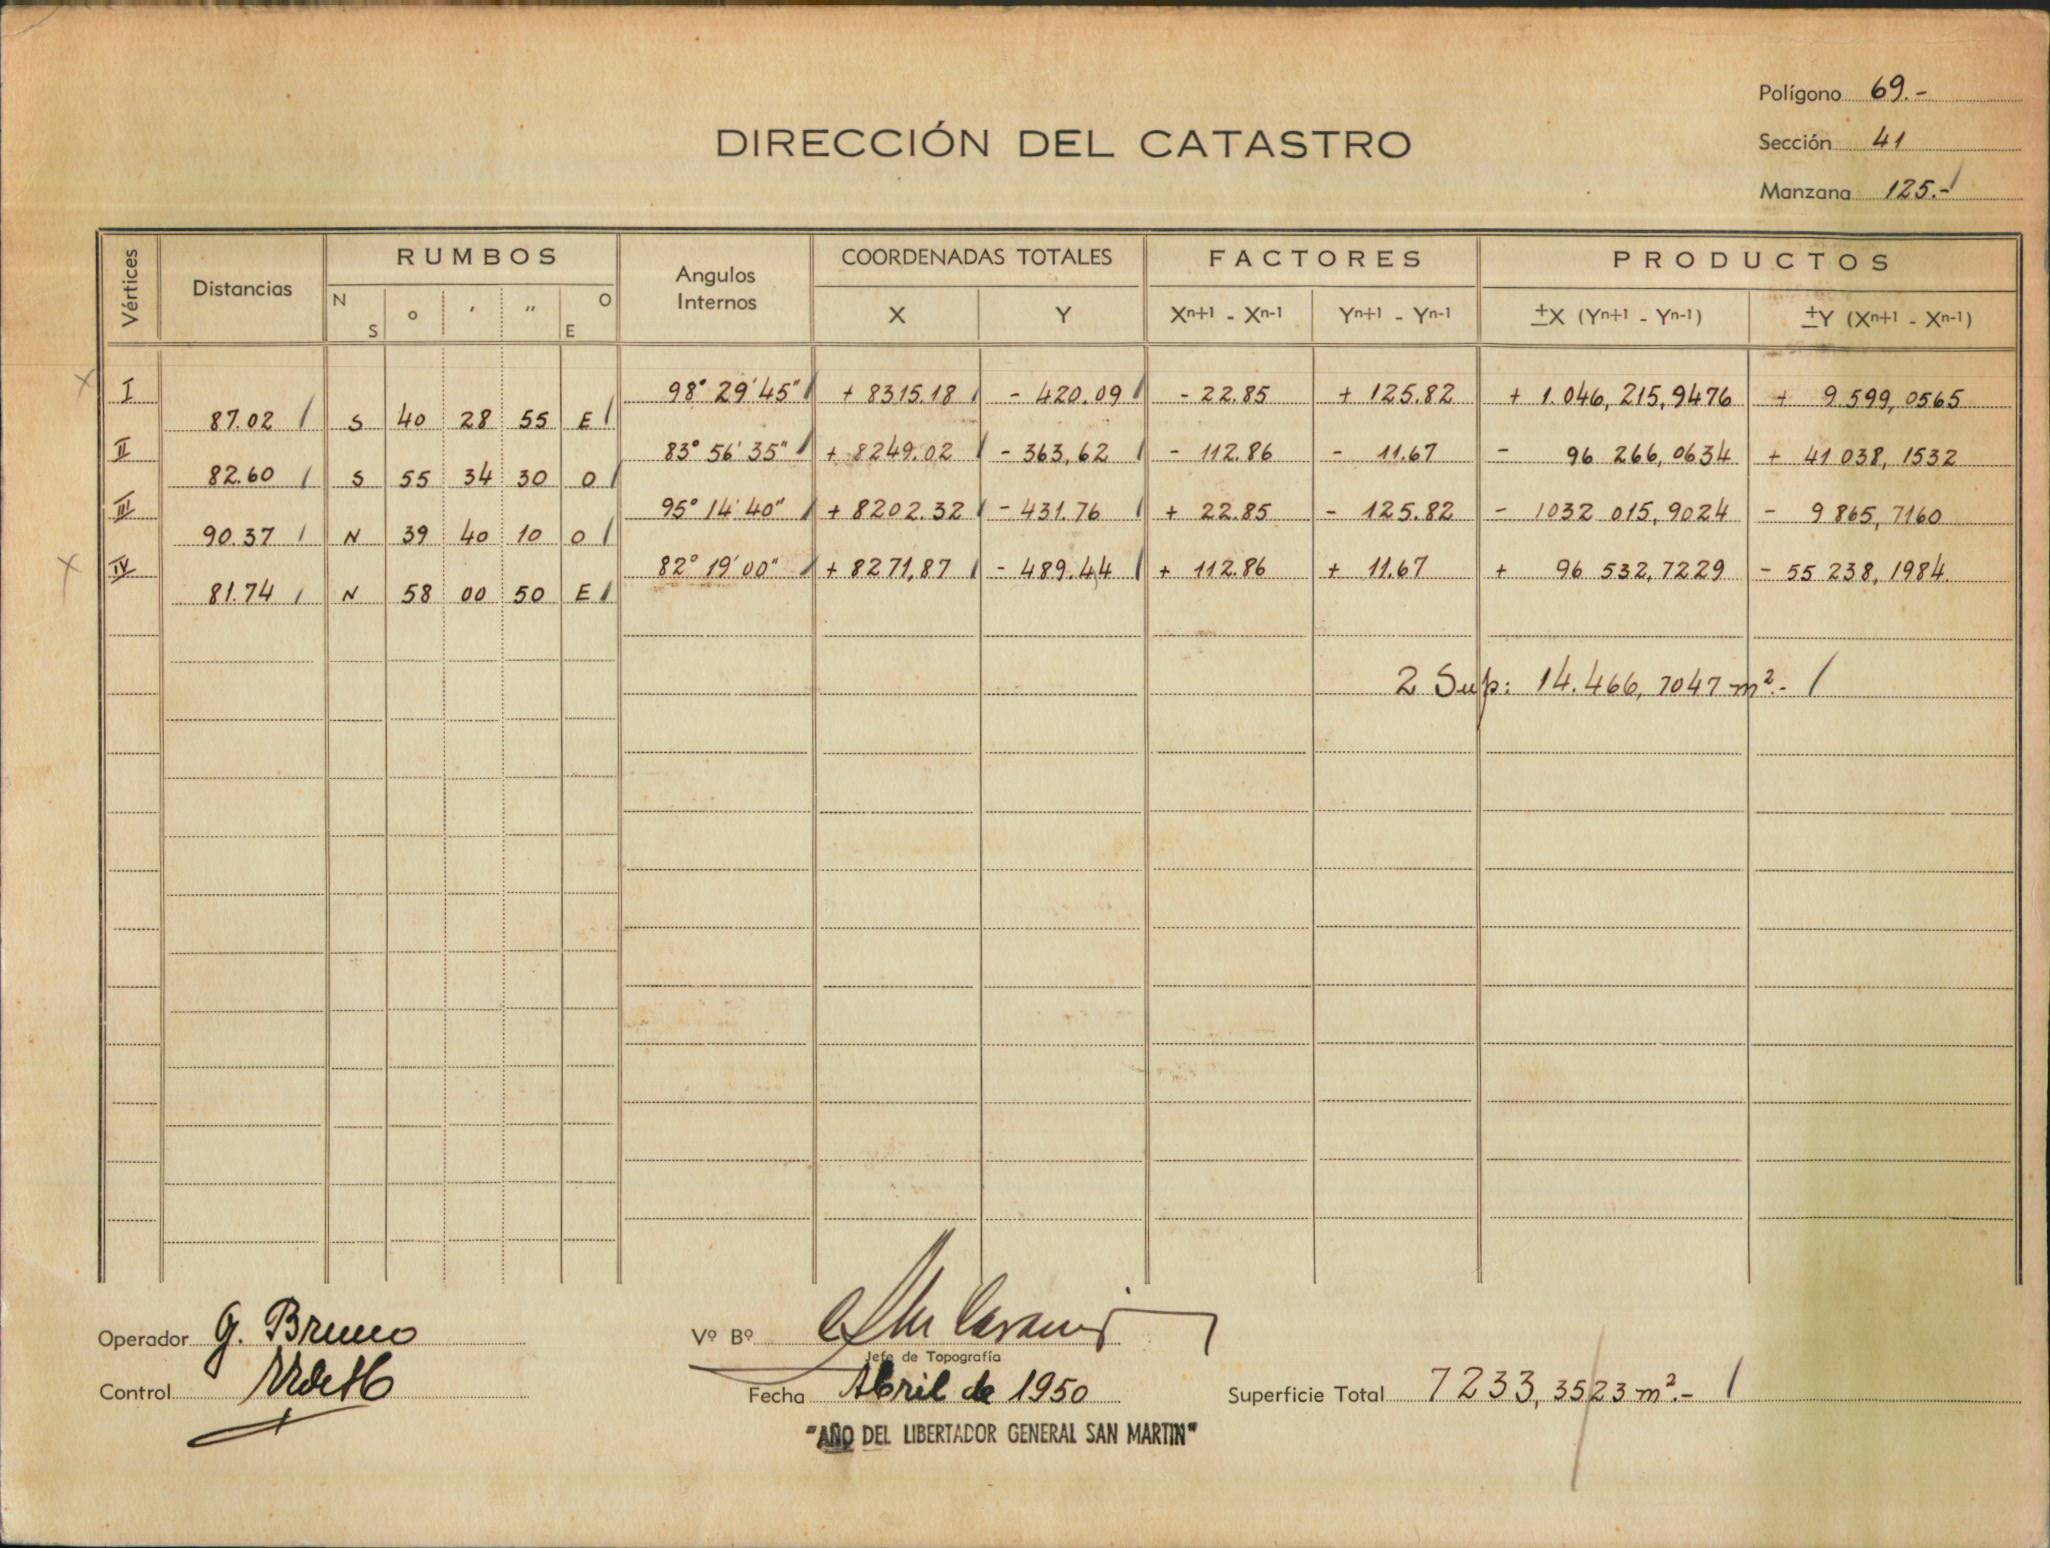 Polígono 69.-
DIRECCIÓN DEL CATASTRO
Sección 41
Manzana 125.-
Vértices Distancias RUMBOS Angulos Internos COORDENADAS TOTALES FACTORES PRODUCTOS
N S ° ' " O E X Y Xn+1 - Xn-1 Yn+1 - Yn-1 ±X (Yn+1 - Yn-1) ±Y (Xn+1 - Xn-1)
I 98° 29' 45" + 8315.18 - 420.09 - 22.85 + 125.82 + 1.046,215,9476 + 9 599,0565
87.02 S 40 28 55 E
II 83° 56' 35" + 8249.02 - 363,62 - 112.86 - 11.67 - 96 266,0634 + 41 038,1532
82.60 S 55 34 30 O
III 95° 14' 40" + 8202.32 - 431.76 + 22.85 - 125.82 - 1032 015,9024 - 9 865,7160
90.37 N 39 40 10 O
IV 82° 19' 00" + 8271,87 - 489.44 + 112.86 + 11.67 + 96 532,7229 - 55 238,1984
81.74 N 58 00 50 E
2 Sup: 14.466,7047 m².-
Operador G. Bruno
Vº Bº
Jefe de Topografía
Control
Fecha Abril de 1950
Superficie Total 7233,3523 m².-
"AÑO DEL LIBERTADOR GENERAL SAN MARTIN"